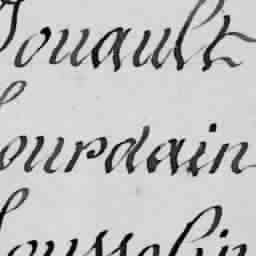 Jouault
Jourdain
Jousselin